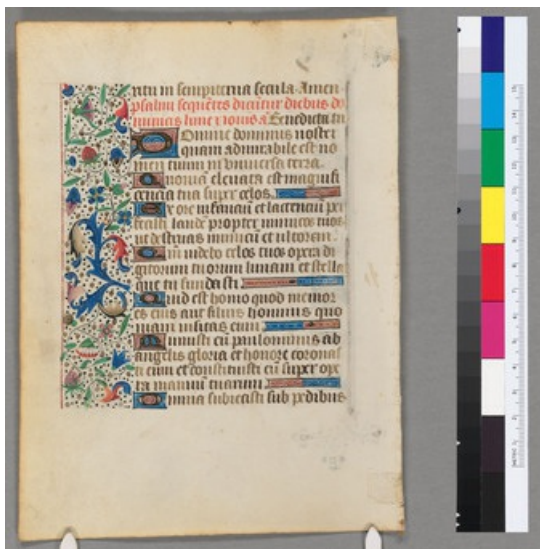 ritu in sempiterna secula. Amen
psalmi sequētes dicūtur diebus do
minicis lune & iovis ā Benedicta tu
Domine dominus noster
quam admirabile est no
men tuum in vniversa terra.
Quoniā elevata est magnifi
cencia tua super celos.
Ex ore infanciū et lactenciū per
fecisti laudē propter inimicos tuos
ut destruas inimicū et ultorem.
Quoniā videbo celos tuos opera di
gitorum tuorum lunam et stella
que tu fundasti.
Quid est homo quod memor
es eius aut filius hominis quo
niam visitas eum.
Minuisti eū paulominus ab
angelis gloria et honore coronas
ti eum et constituisti eū super ope
ra manuū tuarum.
Omnia subiecisti sub pedibus